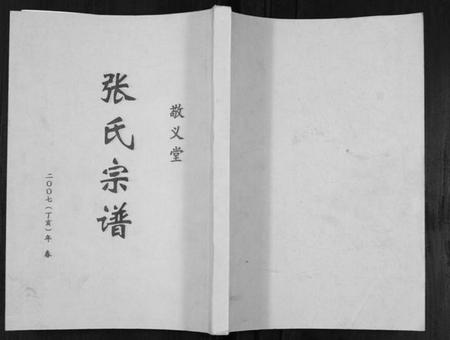 敬义堂
张氏宗谱
二〇〇七（丁亥）年 春